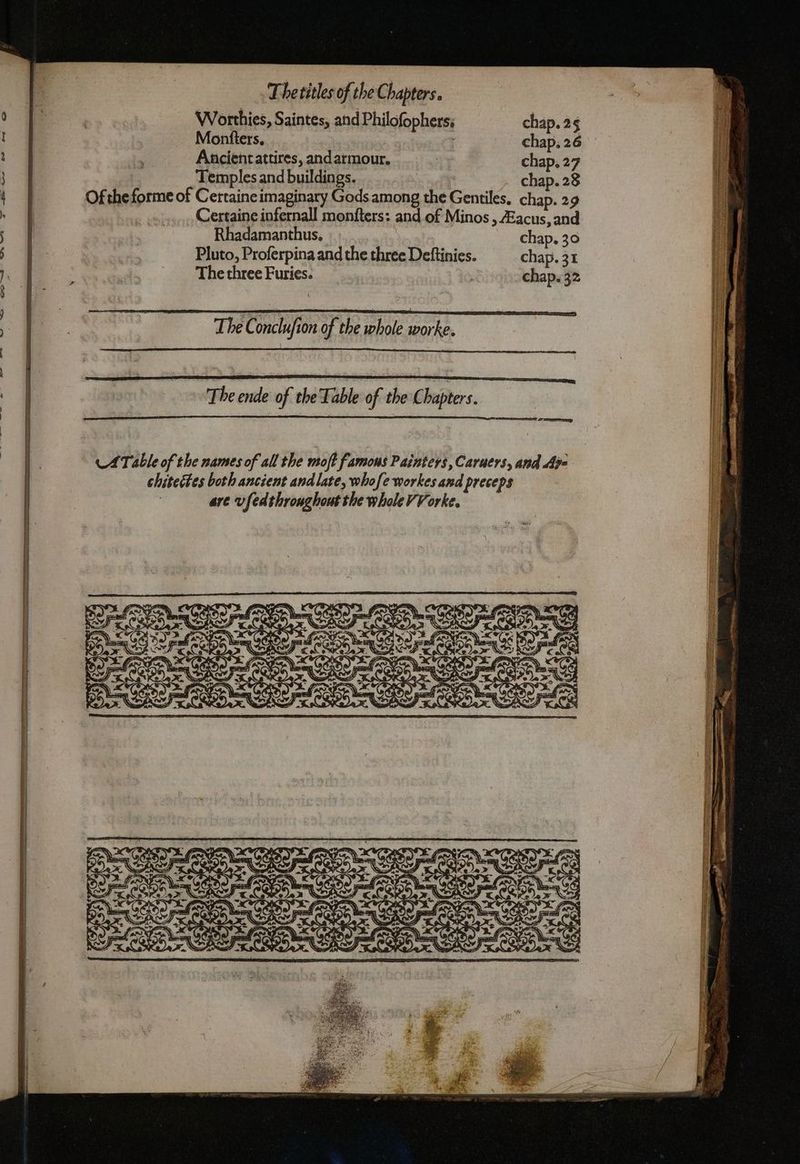 The titles of the Chapters.
VVorthies, Saintes, and Philoſophers; chap. 25
Monſters. chap. 26
Ancient attires, and armour. chap. 27
Temples and buildings. chap. 28
Of the forme of Certaine imaginary Gods among the Gentiles. chap. 29
Certaine infernall monſters: and of Minos, Æacus, and
Rhadamanthus. chap. 30
Pluto, Proſerpina and the three Deſtinies. chap. 31
The three Furies. chap. 32
The Concluſion of the whole worke.
The ende of the Table of the Chapters.
A Table of the names of all the moſt famous Painters, Caruers, and Ar-
chitectes both ancient and late, whoſe workes and preceps
are vſed throughout the whole VVorke.